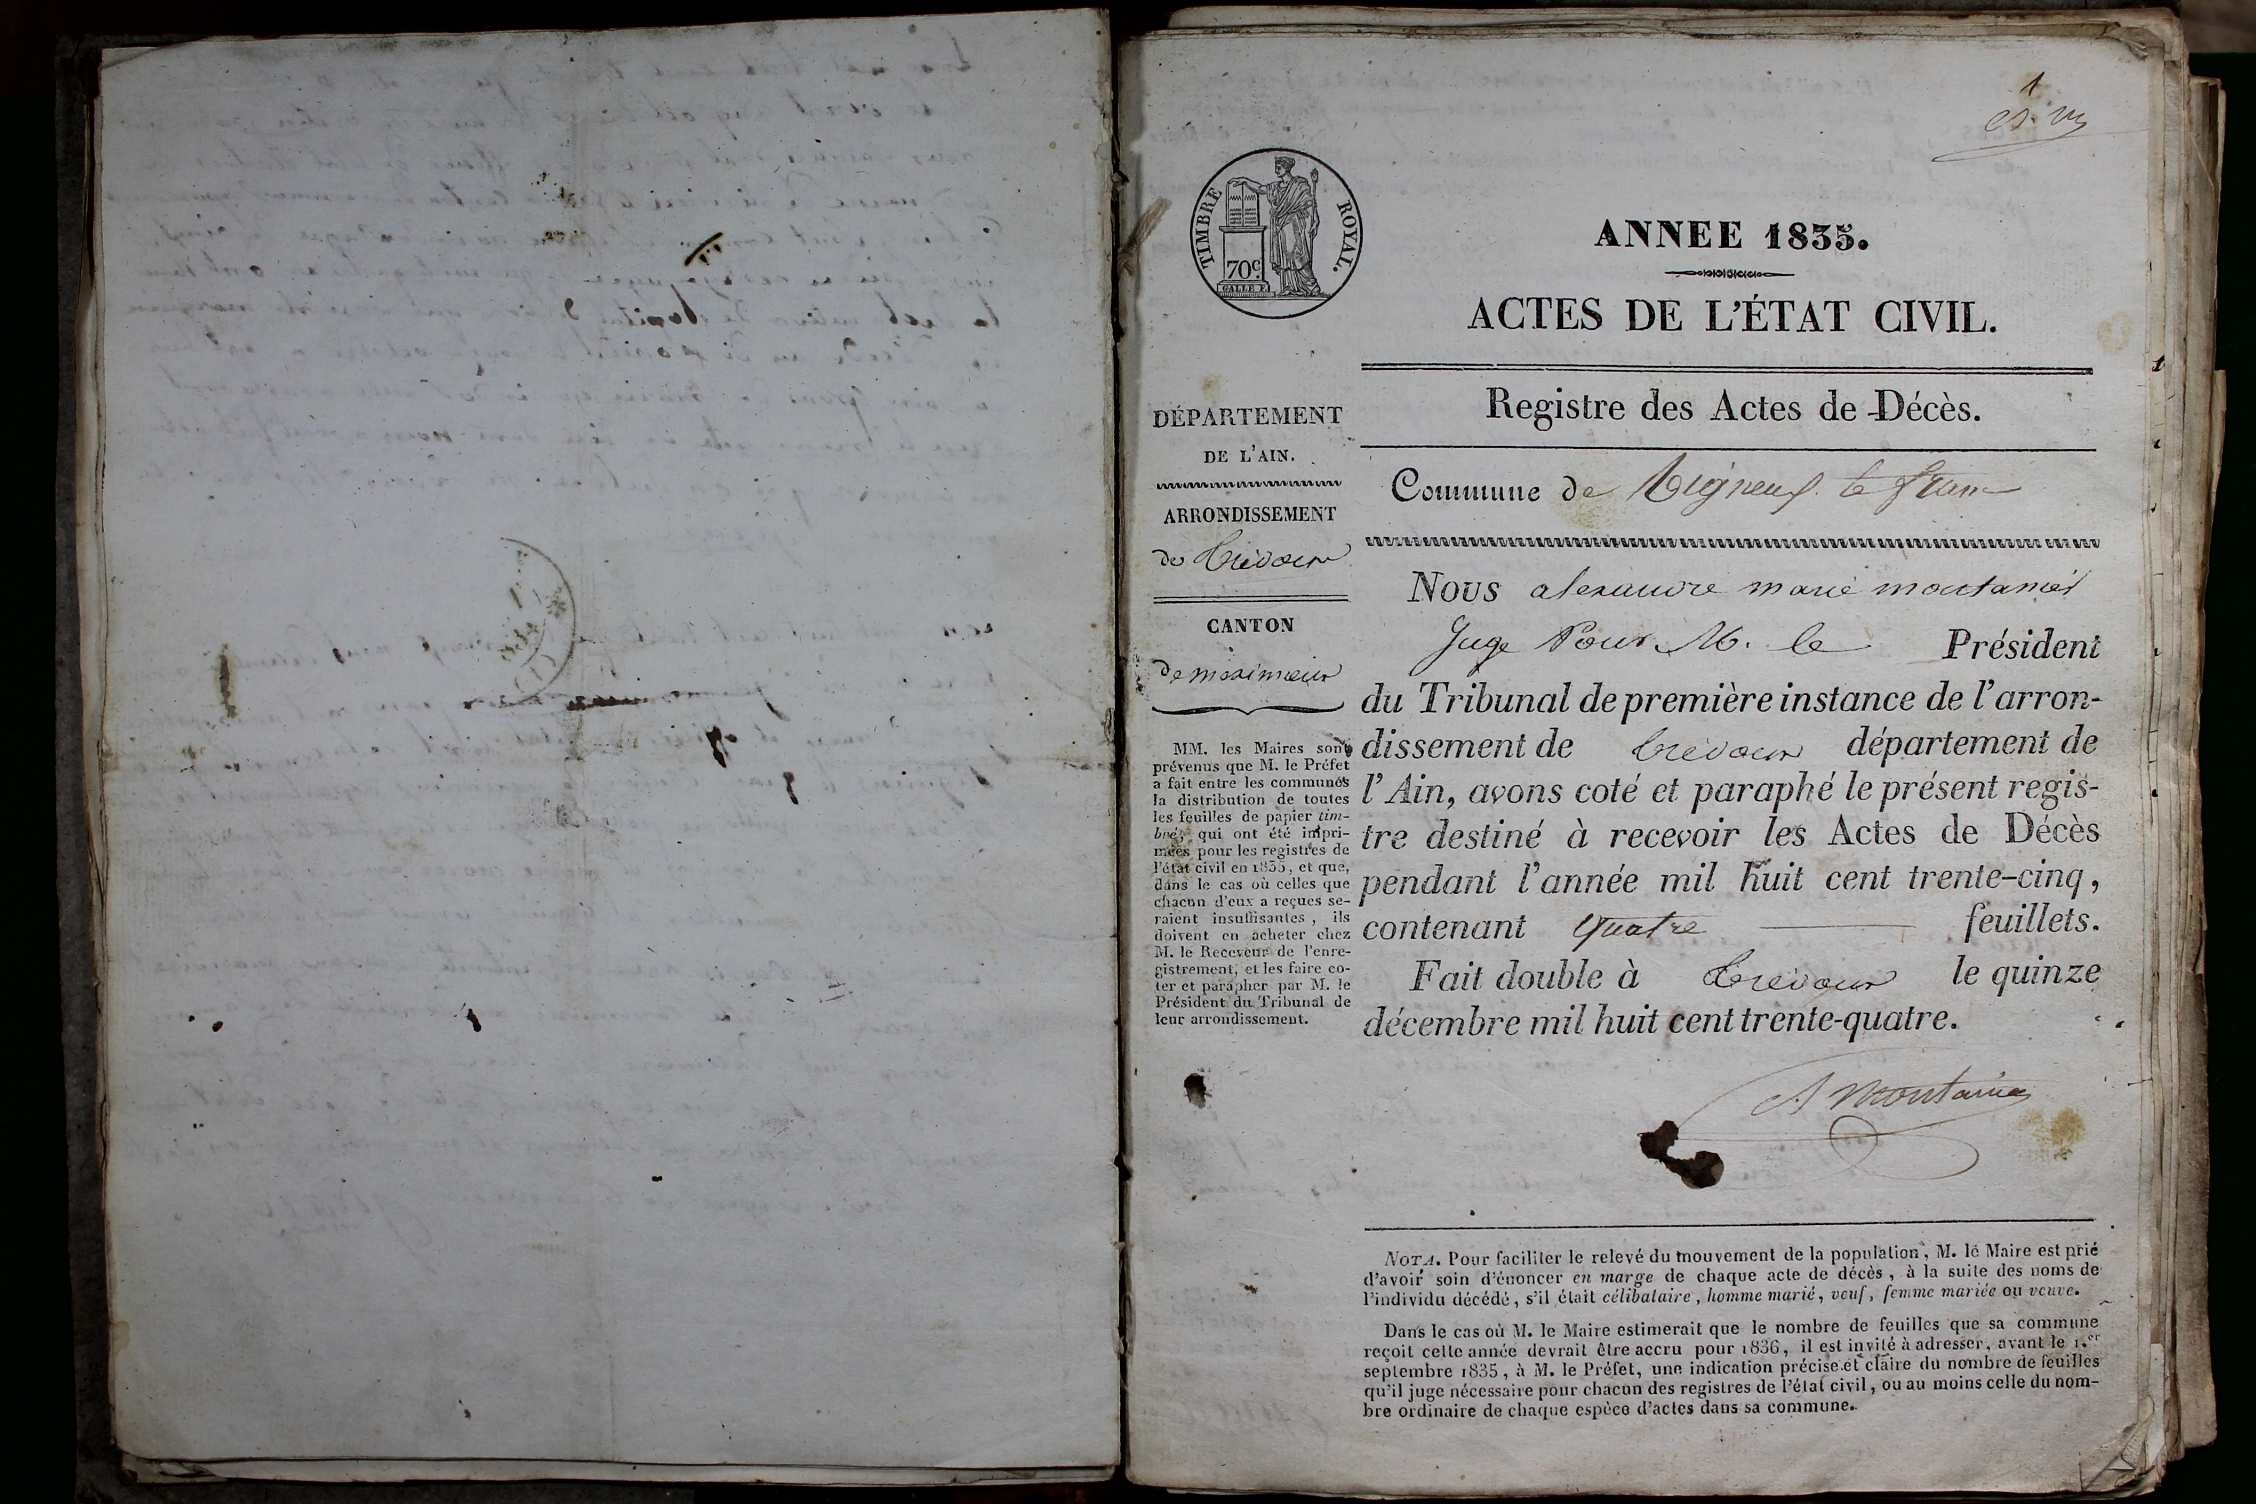 1
TIMBRE ROYAL.
70c.
ANNEE 1835.
ACTES DE L'ÉTAT CIVIL.
Registre des Actes de Décès.
DÉPARTEMENT
DE L'AIN.
ARRONDISSEMENT
de Trévoux
CANTON
de meximieux
MM. les Maires sont
prévenus que M. le Préfet
a fait entre les communes
la distribution de toutes
les feuilles de papier tim-
bré, qui ont été impri-
mées pour les registres de
l'état civil en 1835, et que,
dans le cas où celles que
chacun d'eux a reçues se-
raient insuffisantes, ils
doivent en acheter chez
M. le Receveur de l'enre-
gistrement, et les faire co-
ter et parapher par M. le
Président du Tribunal de
leur arrondissement.
Commune de Rigneux le franc
Nous alexandre marie montanier
Juge Pour M. le Président
du Tribunal de première instance de l'arron-
dissement de trévoux département de
l'Ain, avons coté et paraphé le présent regis-
tre destiné à recevoir les Actes de Décès
pendant l'année mil huit cent trente-cinq,
contenant quatre feuillets.
Fait double à trévoux le quinze
décembre mil huit cent trente-quatre.
A Montanier
NOTA. Pour faciliter le relevé du mouvement de la population, M. le Maire est prié
d'avoir soin d'énoncer en marge de chaque acte de décès, à la suite des noms de
l'individu décédé, s'il était célibataire, homme marié, veuf, femme mariée ou veuve.
Dans le cas où M. le Maire estimerait que le nombre de feuilles que sa commune
reçoit cette année devrait être accru pour 1836, il est invité à adresser, avant le 1.er
septembre 1835, à M. le Préfet, une indication précise et claire du nombre de feuilles
qu'il juge nécessaire pour chacun des registres de l'état civil, ou au moins celle du nom-
bre ordinaire de chaque espèce d'actes dans sa commune.